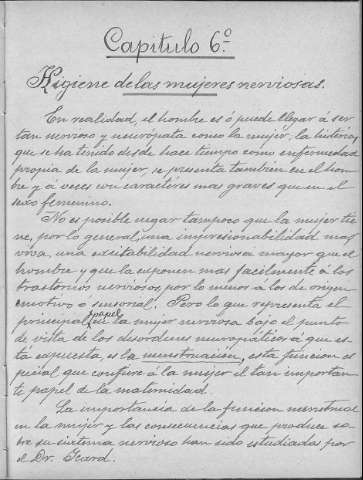 Capitulo 6º
Higiene de las mujeres nerviosas.
En realidad, el hombre es ó puede llegar á ser
tan nervioso y neurópata como la mujer, la histeria,
que se ha tenido desde hace tiempo como enfermedad
propia de la mujer, se presenta tambien en el hom
bre y á veces con caractéres mas graves que en el
sexo femenino.
No es posible negar tampoco que la mujer tie
ne, por lo general, una impresionabilidad mas
viva, una excitabilidad nerviosa mayor que el
hombre y que la exponen mas facilmente á los
trastornos nerviosos por lo menos á los de origen
emotivo ó sensorial. Pero lo que representa el
principal papel en la mujer nerviosa bajo el punto
de vista de los desordenes neuropáticos á que es
ta expuesta, es la menstruacion, esta funcion es
pecial que confiere á la mujer el tan importan
te papel de la maternidad.
La importancia de la funcion menstrual
en la mujer y las consecuencias que produce so
bre su sistema nervioso han sido estudiadas por
el Dr. Icard.